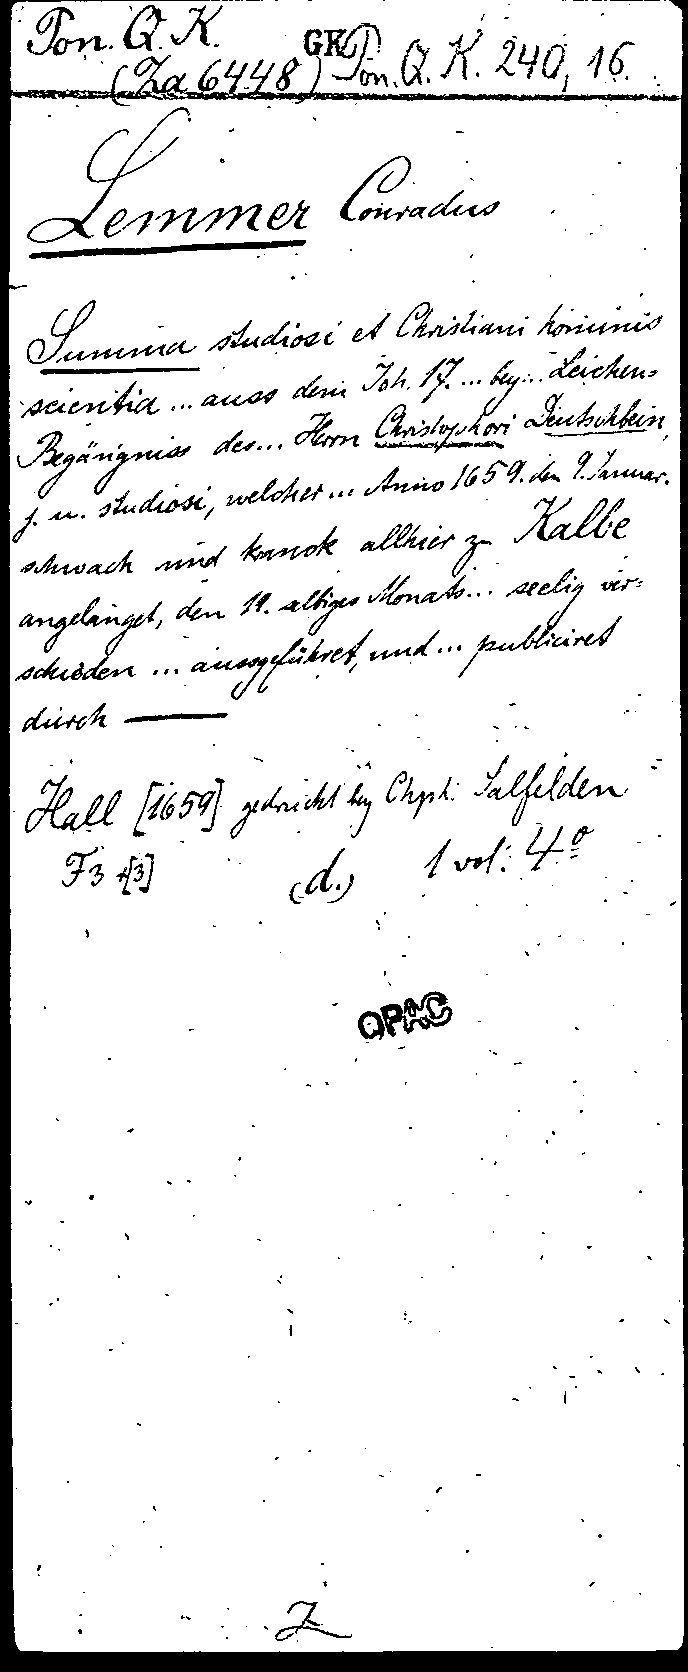 Pon. Q. K.
(Za 6448) GK Pon. Q. K. 240, 16.
Lemmer Conradus
Summa studiosi et Christiani hominis
scientia ... auss dem Joh. 17. ... bey ... Leichen-
Begängniss des ... Herrn Christophori Deutschbein,
j. u. studiosi, welcher ... Anno 1659. den 9. Januar.
schwach und kranck allhier zu Kalbe
angelanget, den 19. selbiges Monats ... seelig ver-
schieden ... aussgeführet, und ... publiciret
durch ——
Hall [1659] gedruckt bey Chph. Salfelden
F3 +[3] (d.) 1 vol: 4º
OPAC
Z